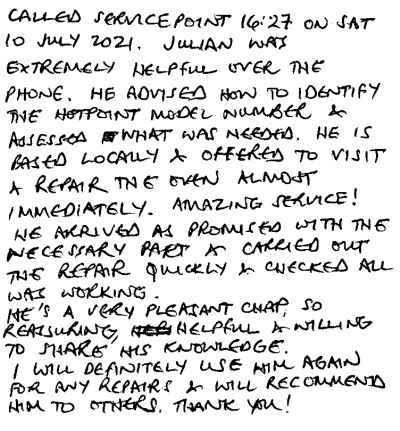 CALLED SERVICEPOINT 16:27 ON SAT
10 JULY 2021. JULIAN WAS
EXTREMELY HELPFUL OVER THE
PHONE. HE ADVISED HOW TO IDENTIFY
THE HOTPOINT MODEL NUMBER &
ASSESSED WHAT WAS NEEDED. HE IS
BASED LOCALLY & OFFERED TO VISIT
& REPAIR THE OVEN ALMOST
IMMEDIATELY. AMAZING SERVICE!
HE ARRIVED AS PROMISED WITH THE
NECESSARY PART & CARRIED OUT
THE REPAIR QUICKLY & CHECKED ALL
WAS WORKING.
HE'S A VERY PLEASANT CHAP, SO
REASSURING, HELPFUL & WILLING
TO SHARE HIS KNOWLEDGE.
I WILL DEFINITELY USE HIM AGAIN
FOR ANY REPAIRS & WILL RECOMMEND
HIM TO OTHERS. THANK YOU!